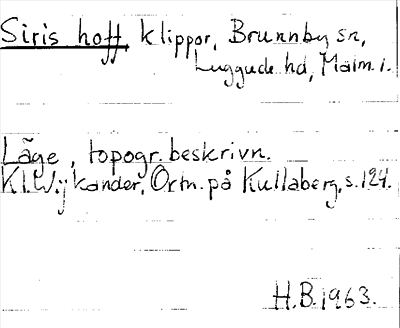 Siris hoff, klippor, Brunnby sn,
Luggude hd, Malm. l.
Läge, topogr. beskrivn.
Kl. Wijkander, Ortn. på Kullaberg, s. 124.
H.B. 1963.